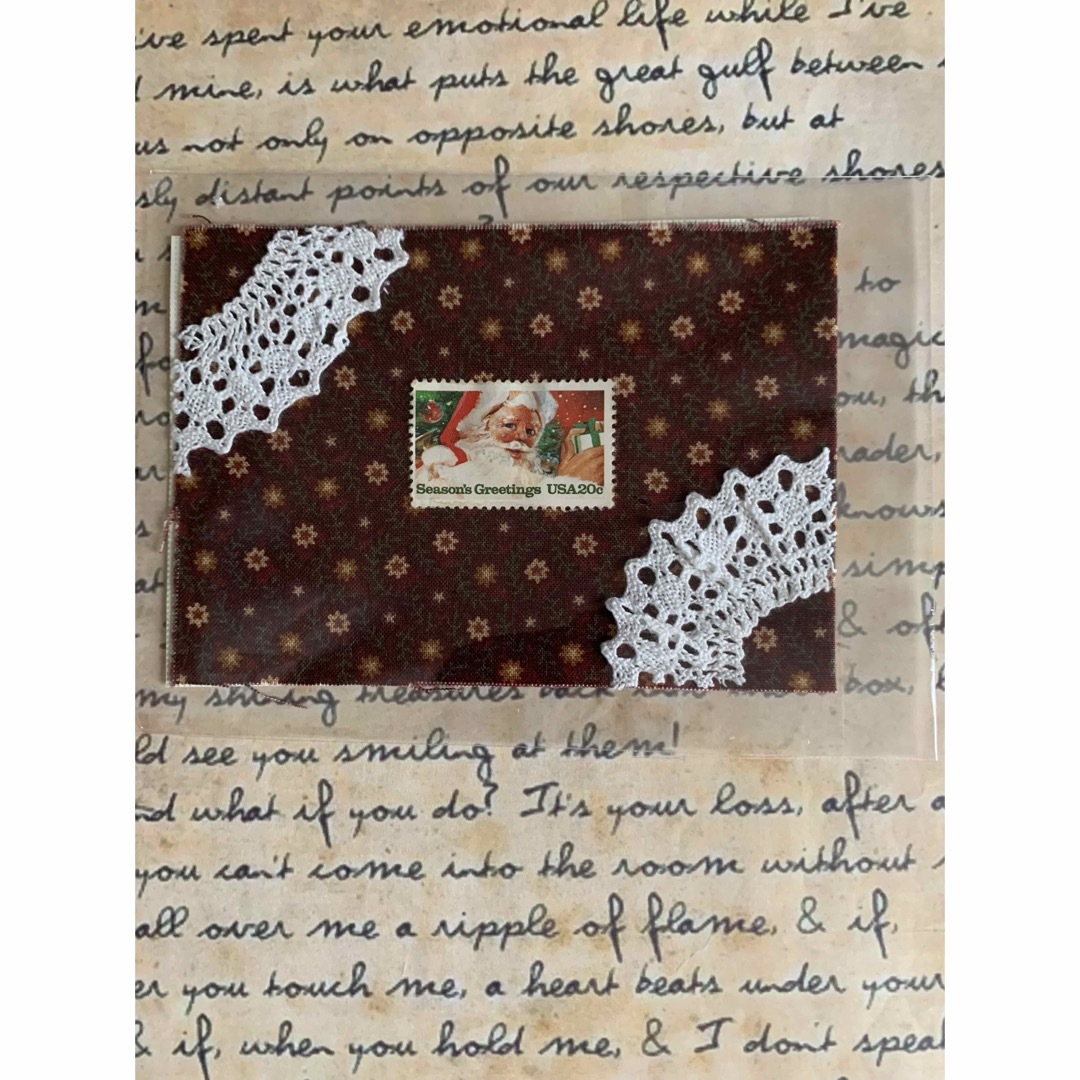 've spent your emotional life while I've
mine, is what puts the great gulf between
us not only on opposite shores, but at
sly distant points of our respective shores
to
magic
ou, th
Season's Greetings USA20c
rader,
knows
at simp
& oft
my shining treasures back box,
ld see you smiling at them!
nd what if you do? It's your loss, after a
you can't come into the room without
all over me a ripple of flame, & if,
er you touch me, a heart beats under your
& if, when you hold me, & I don't speak